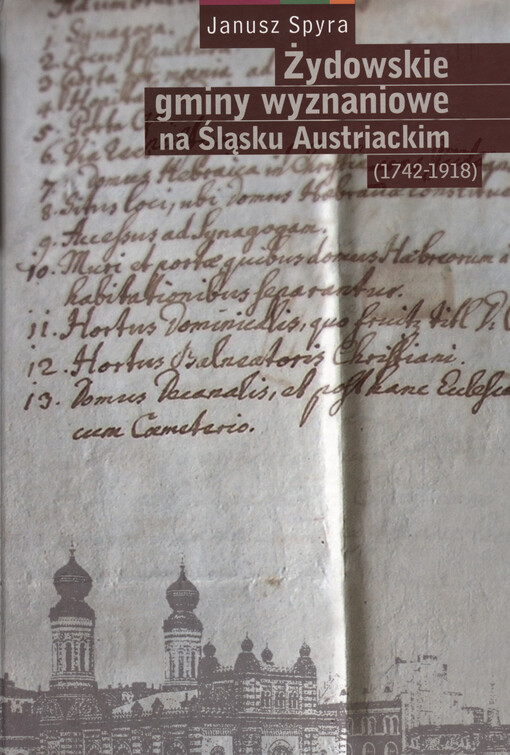 Janusz Spyra
Żydowskie
gminy wyznaniowe
na Śląsku Austriackim
(1742-1918)
1. Synagoga.
2.
3. Porta
4.
5. Porta
6. Via
7. Domus Hebraea
8. Situs loci, ubi domus Hebraea
9. Accessus ad Synagogam.
10. Muri et portæ quibus domus Hæbreorum a
habitationibus separantur.
11. Hortus Dominicalis, quo
12. Hortus Balneatoris Christiani.
13. Domus Decanalis, et post hanc Ecclesia
cum Cœmeterio.